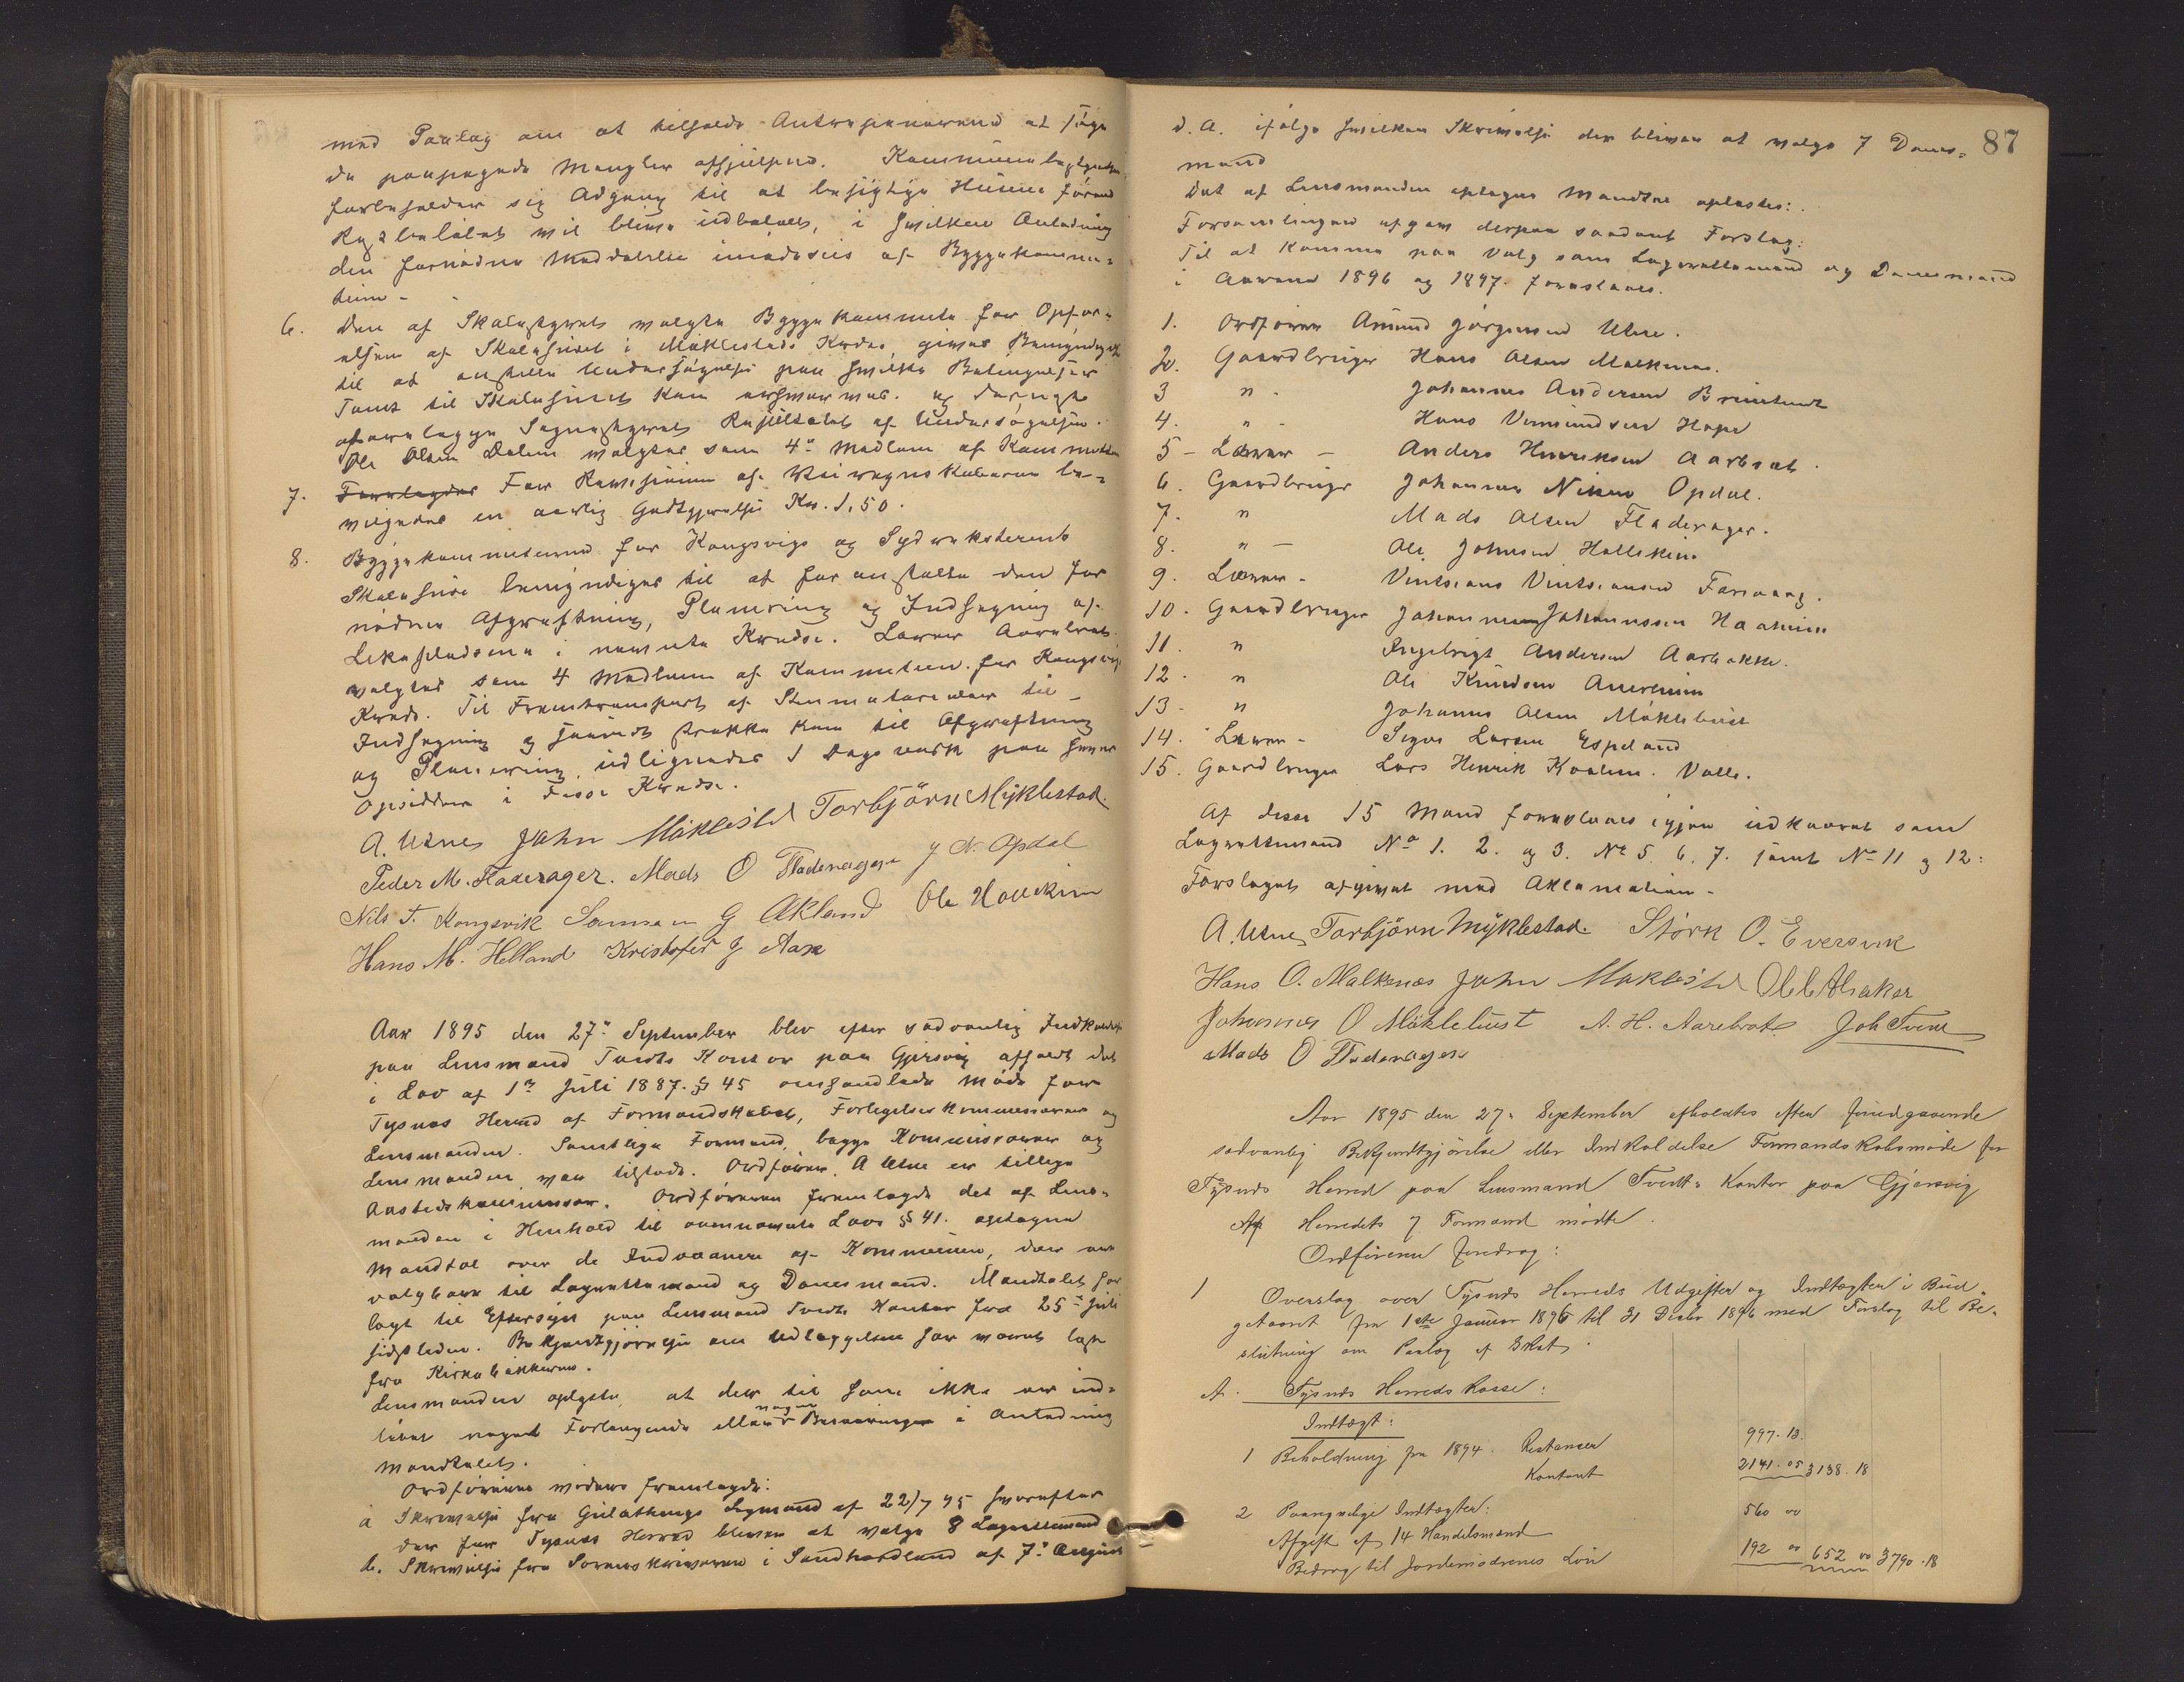 med Paalæg om at tilholde Entreprenørerne at søge
de paapegede Mangler afhjulpne. Kommunebestyrelsen
forbeholder sig Adgang til at besigtige Husene førend
Restbeløbet vil blive udbetalt, i hvilken Anledning
den fornødne Meddelelse imødesees af Byggekommi-
teen -
6. Den af Skolestyret valgte Byggekommite for Opfør-
elsen af Skolehuset i Møklestads Kreds, gives Bemyndigelse
til at anstille Undersøgelse paa hvilke Betingelser
Tomt til Skolehuset kan erhverves. og derefter
forelægge Sogne styret Resultatet af Undersøgelsen.
Ole Olsen Dalen valgtes som 4de Medlem af Kommitteen
7. Forelagdes For Revisionen af Veiregnskaberne be-
vilgedes en aarlig Godtgjørelse Kr. 1,50.
8. Byggekommiteerne for Kongsvigs og Sydreksterens
Skolehuse bemyndiges til at foranstalte den for
nødne Afgrøftning, Planering og Indhegning af
Lekepladsene i nævnte Kredse. Lærer Aarebrot
valgtes som 4 Medlem af Kommiteen for Kongsvigs
Kreds. Til Fremtransport af Stenmaterialer til
Indhegning og saavidt strække kan til Afgrøftning
og Planering, udlignedes 1 Dagsverk paa hver
Opsidder i disse Kredse.
A. Utnes John Møklestad Torbjörn Myklestad.
Peder M. Fladerager. Mads O Fladerager J N. Opdal
Nils T. Kongsvik Samson G Økland Ole Hollekim
Hans M. Helland Kristofer G Aase
Aar 1895 den 27de September blev efter sædvanlig Indkaldelse
paa Lensmand Tvedts Kontor paa Gjersvig afholdt det
i Lov af 1ste Juli 1887. § 45 omhandlede Møde for
Tysnes Herred af Formandskabet, Forligelseskommissærer og
Lensmanden. Samtlige Formænd, begge Kommissærer og
Lensmanden var tilstede. Ordføreren A Utne er tillige
Aastedskommissær. Ordføreren fremlagde det af Lens-
manden i Henhold til ovennævnte Lovs § 41. optagne
Mandtal over de Indvaanere af Kommunen, der er
valgbare til Lagrettemænd og Domsmænd. Mandtalet har
lagt til Eftersyn paa Lensmand Tvedts Kontor fra 25de Juli
sidstleden. Bekjendtgjørelse om Udlæggelsen har været læst
fra Kirkebakkerne.
Lensmanden oplyste, at der til ham ikke var ind-
løbet noget Forlangende eller nogen Bemærkninger i Anledning
Mandtalet.
Ordføreren videre fremlagde:
a Skrivelse fra Gulathings Lagmand af 22/7 95 hvorefter
der for Tysnes Herred bliver at vælge 8 Lagrettemænd
b. Skrivelse fra Sorenskriveren i Søndhordland af 7de August
87
d. A. ifølge hvilken Skrivelse der bliver at vælge 7 Doms-
mænd
Det af Lensmanden optagne Mandtal oplæstes:
Forsamlingen afgav derpaa saadant Forslag:
Til at komme paa Valg som Lagrettemænd og Domsmænd
i Aarene 1896 og 1897. foreslaaes.
1. Ordfører Amund Jørgensen Utne.
2. Gaardbruger Hans Olsen Malkenes.
3 " - Johannes Andersen Breiteredt
4. " - Hans Vemundsen Hope
5 - Lærer - Anders Henriksen Aarbrot.
6. Gaardbruger Johannes Nilsen Opdal.
7. " Mads Olsen Fladerager.
8. " - Ole Johnsen Holleskim
9. Lærer - Vintsens Vintsensen Farevaag.
10. Gaardbruger Johannes Johannessen Haaheim
11. " Ingebrigt Andersen Aarbakke.
12. " Ole Knudsen Aareheim
13 - " Johannes Olsen Møklebust
14. Lærer - Sigvor Larsen Espeland
15. Gaardbruger Lars Henrik Koalen. Valle.
Af disse 15 Mand foreslaaes igjen udkaaret som
Lagrettemænd No 1. 2. og 3. No 5. 6. 7. samt No 11 og 12:
Forslaget afgivet med Aklamation.
A. Utne, Torbjörn Myklestad. Störk O. Eversvik
Hans O. Malkenes John Møklestad Ole Abraker
Johannes O Möklebust A. H. Aarebrot. Joh Tveit
Mads O Fladerager
Aar 1895 den 27de September afholdtes efter foregaaende
sædvanlig Bekjendtgjörelse eller Indkaldelse Formandskabsmöde for
Tysnes Herred paa Lensmand Tvedts Kontor paa Gjersvig
Af Herredets 7 Formænd mödte.
Ordföreren foredrog:
1 Overslag over Tysnes Herreds Udgifter og Indtægter i Bud-
getaaret fra 1ste Januar 1896 til 31 Decbr 1896 med Forslag til Be-
slutning om Paalæg af Skat.
A. Tysnes Herreds Kasse:
Indtægt:
1 Beholdning fra 1894. Restancer 997. 13.
Kontant 2141. 05 3138. 18
2 Paaregnelige Indtægter:
Afgift af 14 Handelsmænd 560 00
Bidrag til Jordemødrenes Løn 192 00 652 00 3790. 18